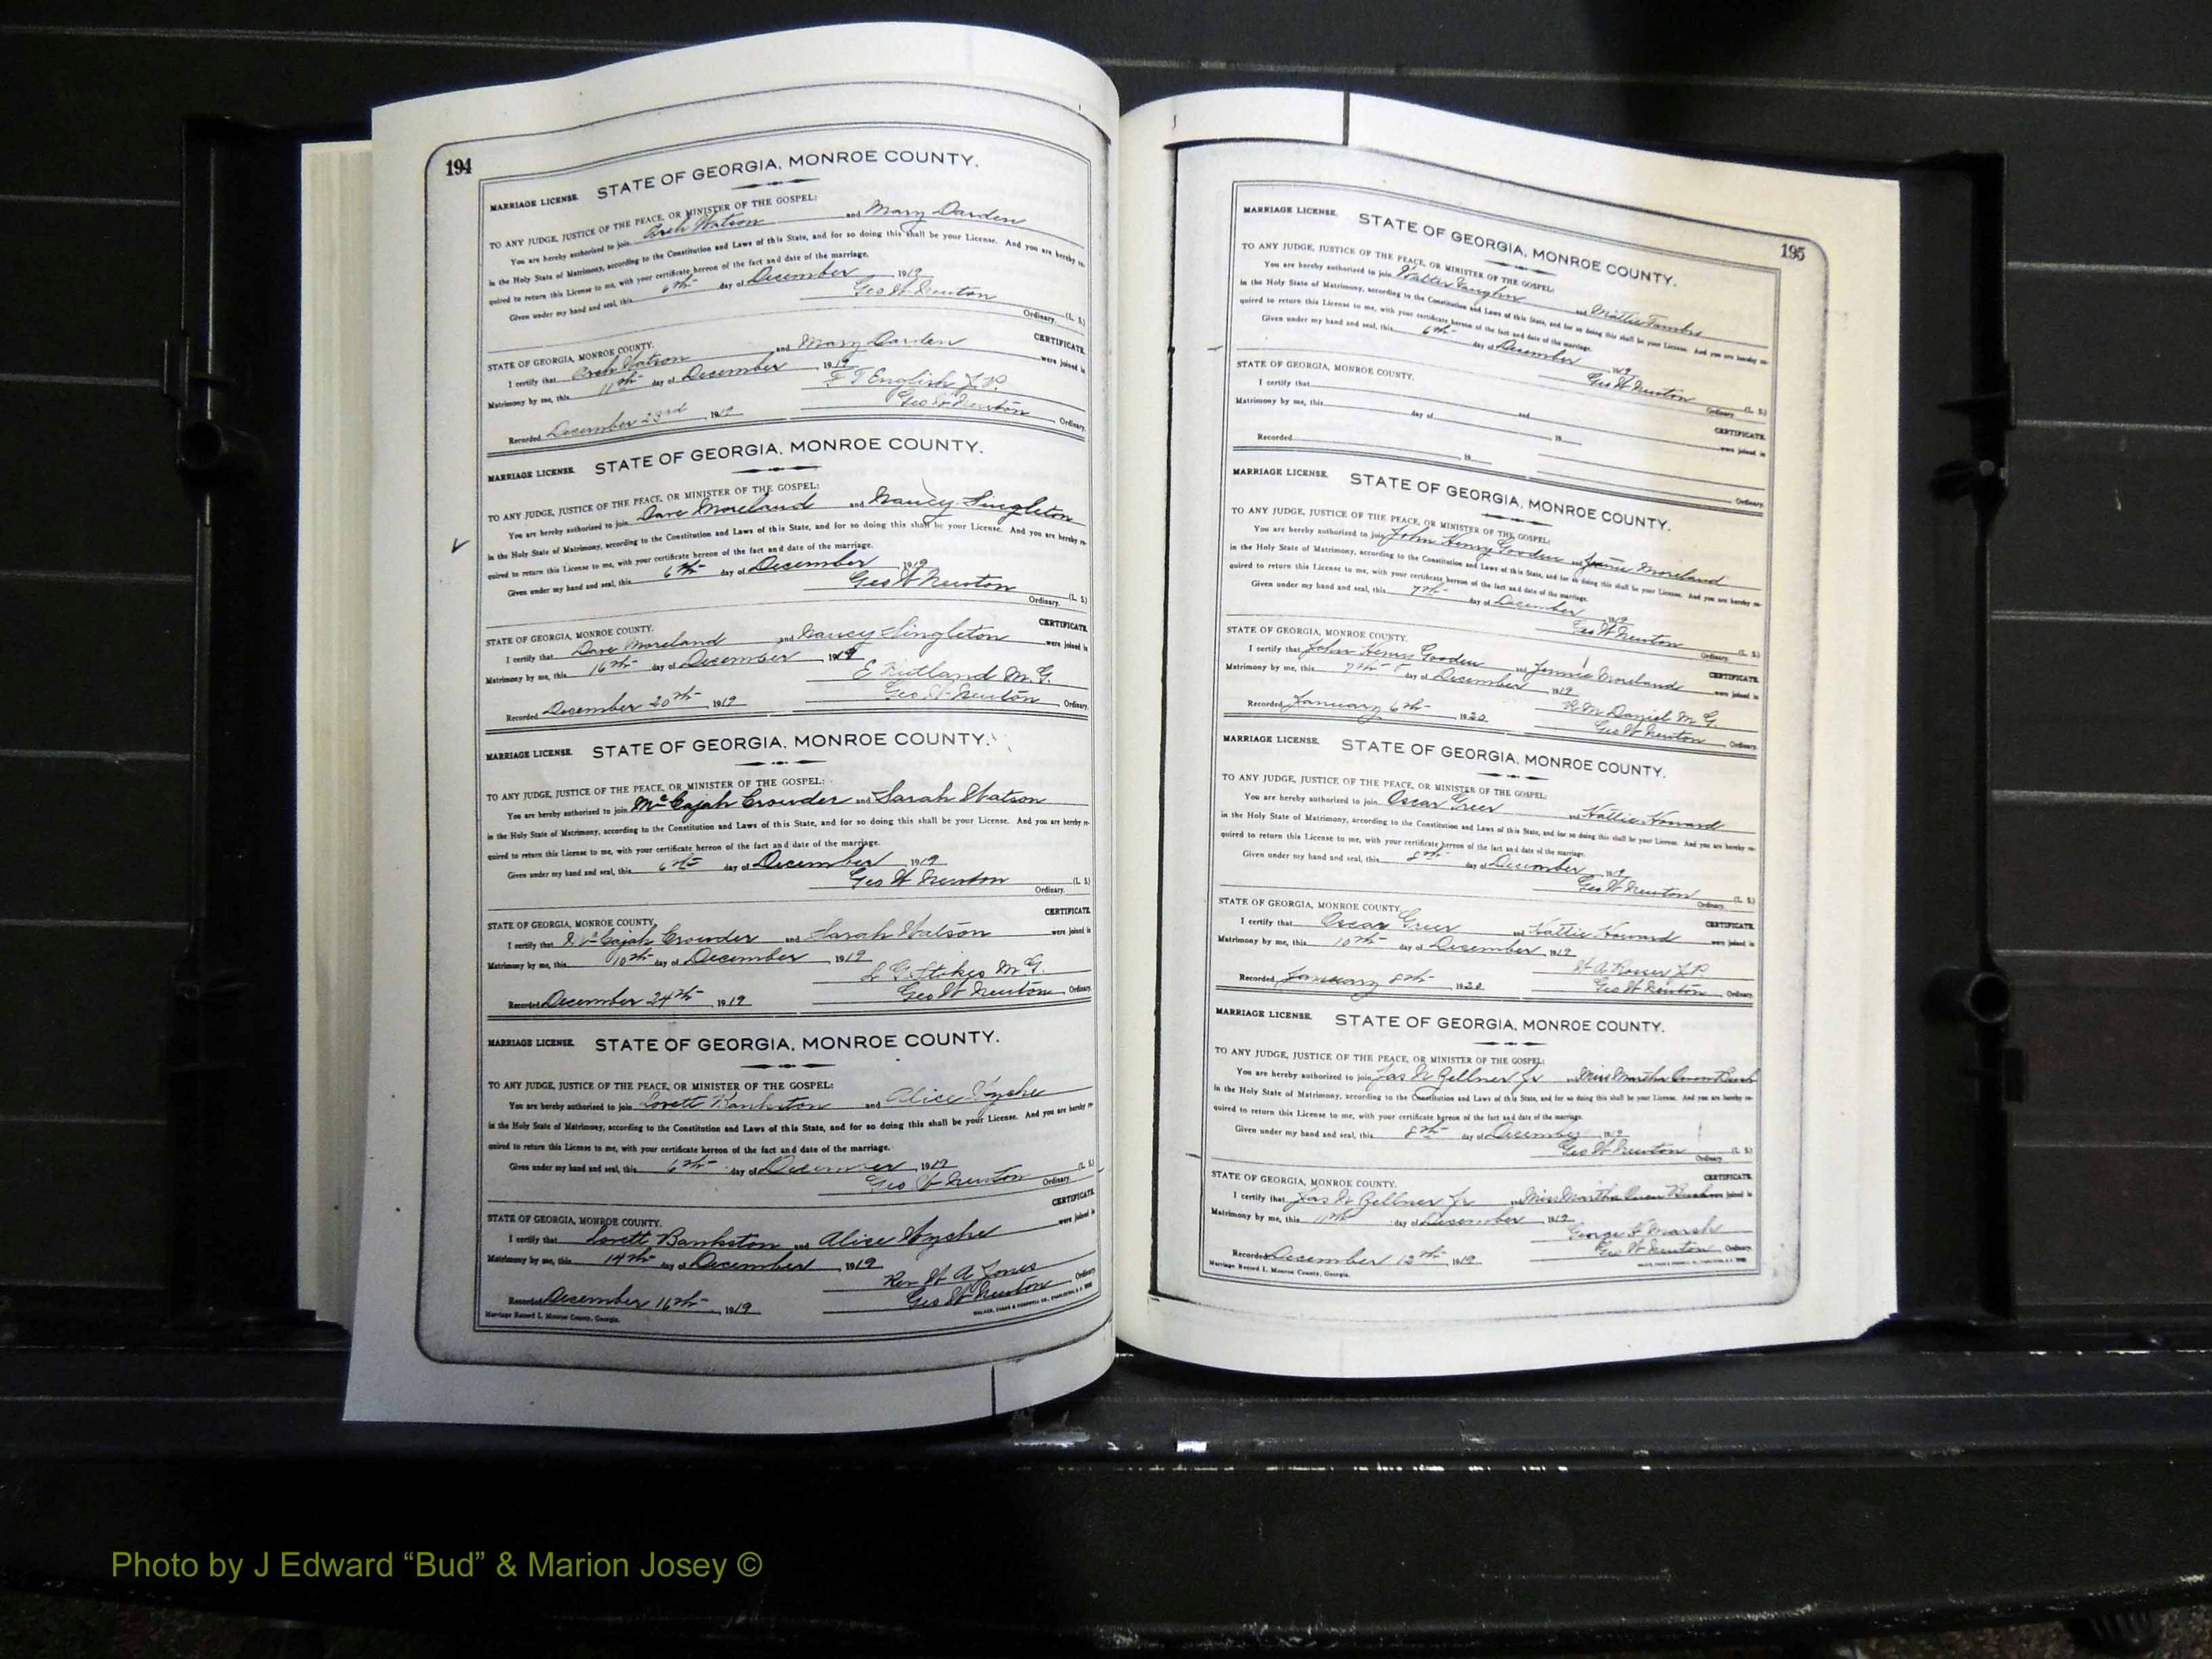 194
MARRIAGE LICENSE. STATE OF GEORGIA, MONROE COUNTY.
TO ANY JUDGE, JUSTICE OF THE PEACE, OR MINISTER OF THE GOSPEL:
You are hereby authorized to join Arch Watson and Mary Darden
in the Holy State of Matrimony, according to the Constitution and Laws of this State, and for so doing this shall be your License. And you are hereby re-
quired to return this License to me, with your certificate hereon of the fact and date of the marriage.
Given under my hand and seal, this 6th day of December 1919
Geo W Newton (L. S.)
Ordinary.
STATE OF GEORGIA, MONROE COUNTY. CERTIFICATE.
I certify that Arch Watson and Mary Darden were joined in
Matrimony by me, this 11th day of December, 1919
F T English J.P.
Recorded December 23rd 1919 Geo W Newton, Ordinary.
MARRIAGE LICENSE. STATE OF GEORGIA, MONROE COUNTY.
TO ANY JUDGE, JUSTICE OF THE PEACE, OR MINISTER OF THE GOSPEL:
You are hereby authorized to join Dave Moreland and Nancy Singleton
in the Holy State of Matrimony, according to the Constitution and Laws of this State, and for so doing this shall be your License. And you are hereby re-
quired to return this License to me, with your certificate hereon of the fact and date of the marriage.
Given under my hand and seal, this 6th day of December, 1919
Geo W Newton (L. S.)
Ordinary.
STATE OF GEORGIA, MONROE COUNTY. CERTIFICATE.
I certify that Dave Moreland and Nancy Singleton were joined in
Matrimony by me, this 16th day of December, 1919
E Rutland M.G.
Recorded December 20th, 1919 Geo W Newton, Ordinary.
MARRIAGE LICENSE. STATE OF GEORGIA, MONROE COUNTY.
TO ANY JUDGE, JUSTICE OF THE PEACE, OR MINISTER OF THE GOSPEL:
You are hereby authorized to join McCajah Crowder and Sarah Watson
in the Holy State of Matrimony, according to the Constitution and Laws of this State, and for so doing this shall be your License. And you are hereby re-
quired to return this License to me, with your certificate hereon of the fact and date of the marriage.
Given under my hand and seal, this 6th day of December, 1919
Geo W Newton (L. S.)
Ordinary.
STATE OF GEORGIA, MONROE COUNTY. CERTIFICATE.
I certify that McCajah Crowder and Sarah Watson were joined in
Matrimony by me, this 10th day of December, 1919
L G Stokes M.G.
Recorded December 24th, 1919 Geo W Newton, Ordinary.
MARRIAGE LICENSE. STATE OF GEORGIA, MONROE COUNTY.
TO ANY JUDGE, JUSTICE OF THE PEACE, OR MINISTER OF THE GOSPEL:
You are hereby authorized to join Lovett Bankston and Alice Wyche
in the Holy State of Matrimony, according to the Constitution and Laws of this State, and for so doing this shall be your License. And you are hereby re-
quired to return this License to me, with your certificate hereon of the fact and date of the marriage.
Given under my hand and seal, this 6th day of December, 1919
Geo W Newton (L. S.)
Ordinary.
STATE OF GEORGIA, MONROE COUNTY. CERTIFICATE.
I certify that Lovett Bankston and Alice Wyche were joined in
Matrimony by me, this 14th day of December, 1919
Rev W A Jones
Recorded December 16th, 1919 Geo W Newton Ordinary.
Marriage Record I, Monroe County, Georgia.
195
MARRIAGE LICENSE. STATE OF GEORGIA, MONROE COUNTY.
TO ANY JUDGE, JUSTICE OF THE PEACE, OR MINISTER OF THE GOSPEL:
You are hereby authorized to join Walter Vaughn and Mattie
in the Holy State of Matrimony, according to the Constitution and Laws of this State, and for so doing this shall be your License. And you are hereby re-
quired to return this License to me, with your certificate hereon of the fact and date of the marriage.
Given under my hand and seal, this 6th day of December 1919
Geo W Newton (L. S.)
Ordinary.
STATE OF GEORGIA, MONROE COUNTY. CERTIFICATE.
I certify that and were joined in
Matrimony by me, this day of , 19
Recorded , 19 Ordinary.
MARRIAGE LICENSE. STATE OF GEORGIA, MONROE COUNTY.
TO ANY JUDGE, JUSTICE OF THE PEACE, OR MINISTER OF THE GOSPEL:
You are hereby authorized to join John Henry Gooden and Jennie Moreland
in the Holy State of Matrimony, according to the Constitution and Laws of this State, and for so doing this shall be your License. And you are hereby re-
quired to return this License to me, with your certificate hereon of the fact and date of the marriage.
Given under my hand and seal, this 7th day of December 1919
Geo W Newton (L. S.)
Ordinary.
STATE OF GEORGIA, MONROE COUNTY. CERTIFICATE.
I certify that John Henry Gooden and Jennie Moreland were joined in
Matrimony by me, this 7th day of December 1919
R M Daniel M.G.
Recorded January 6th, 1920 Geo W Newton Ordinary.
MARRIAGE LICENSE. STATE OF GEORGIA, MONROE COUNTY.
TO ANY JUDGE, JUSTICE OF THE PEACE, OR MINISTER OF THE GOSPEL:
You are hereby authorized to join Oscar Greer and Hattie Howard
in the Holy State of Matrimony, according to the Constitution and Laws of this State, and for so doing this shall be your License. And you are hereby re-
quired to return this License to me, with your certificate hereon of the fact and date of the marriage.
Given under my hand and seal, this 8th day of December 1919
Geo W Newton (L. S.)
Ordinary.
STATE OF GEORGIA, MONROE COUNTY. CERTIFICATE.
I certify that Oscar Greer and Hattie Howard were joined in
Matrimony by me, this 10th day of December 1919
W A J.P.
Recorded January 8th, 1920 Geo W Newton, Ordinary.
MARRIAGE LICENSE. STATE OF GEORGIA, MONROE COUNTY.
TO ANY JUDGE, JUSTICE OF THE PEACE, OR MINISTER OF THE GOSPEL:
You are hereby authorized to join Jas Gellner Jr Miss Martha Owen
in the Holy State of Matrimony, according to the Constitution and Laws of this State, and for so doing this shall be your License. And you are hereby re-
quired to return this License to me, with your certificate hereon of the fact and date of the marriage.
Given under my hand and seal, this 8th day of December 1919
Geo W Newton (L. S.)
Ordinary.
STATE OF GEORGIA, MONROE COUNTY. CERTIFICATE.
I certify that Jas Gellner Jr Miss Martha Owen were joined in
Matrimony by me, this 11th day of December 1919
George F Marsh
Recorded December 12th, 1919 Geo W Newton Ordinary.
Marriage Record I, Monroe County, Georgia.
Photo by J Edward “Bud” & Marion Josey ©